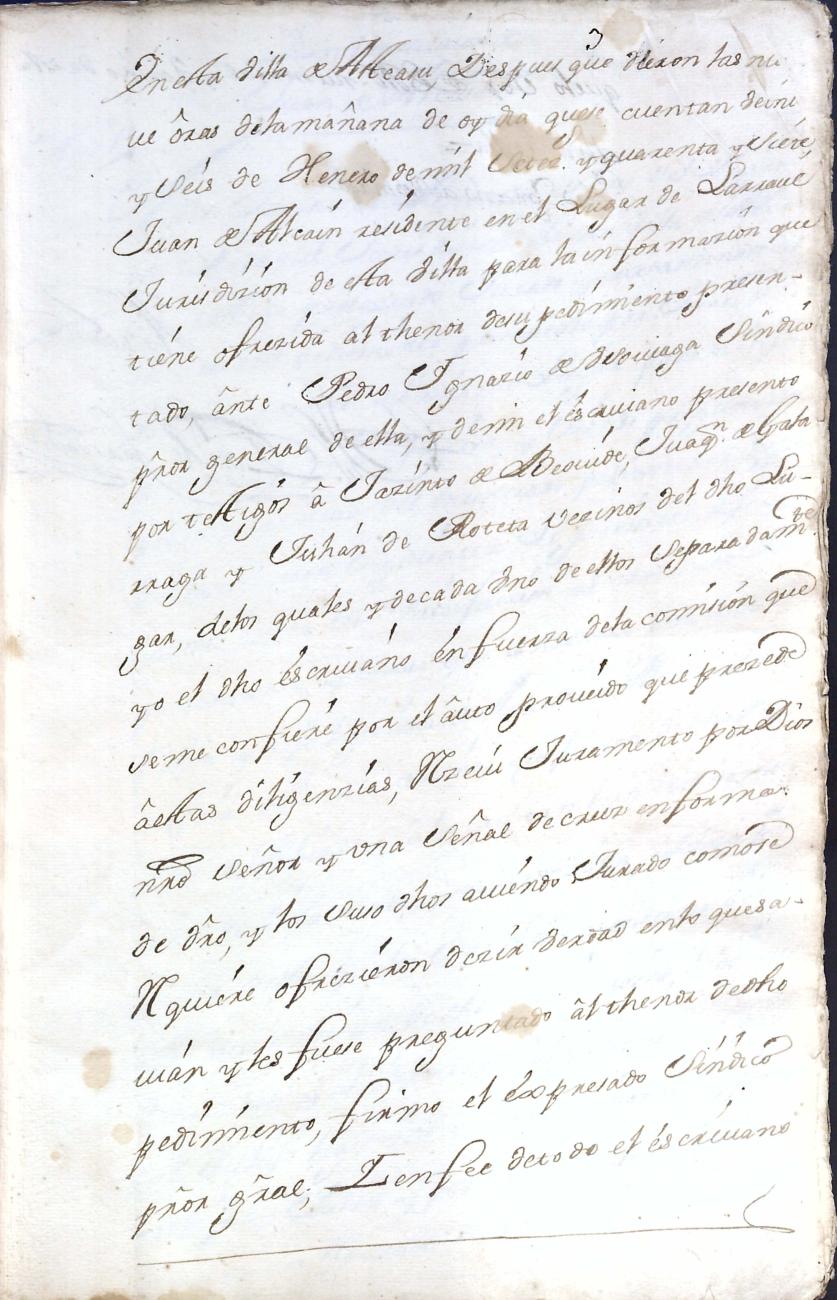 3
En esta Villa de Alzaga Despues que dieron las nu-
ve oras de la mañana de oy dia que se cuentan veinte
y seis de Henero de mil setez.s y quarenta y siete,
Juan de Alcain residente en el Lugar de Larraul
Jurisdizion de esta Villa para la informazion que
tiene ofrezida al thenor de su pedimiento presen-
tado, ante Pedro Ygnazio de Sindico
prõr general de ella, y de mi el escriuano presento
por testigos â Jazinto de Beouide, Juaqn. de Gala
rraga y Juhan de Roteta vezinos del dho Lu-
gar, de los quales y de cada Vno de ellos separadamte
yo el dho escriuano en fuerza de la comision que
se me confiere por el auto proueido que prezede
â estas diligenzias, Rzeui Juramento por Dios
nrõ señor y una señal de cruz en forma
de drõ, y los suso dhos auiendo Jurado como se
Rquiere ofrezieron dezir Verdad en lo que sa-
uian y les fuese preguntado âl thenor de dho
pedimiento, firmo el expresado Sindico
prõr grãl; I en fee de todo el escriuano